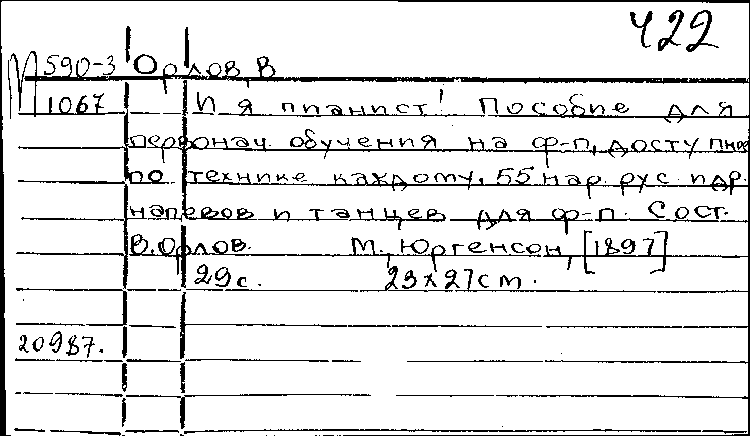 422
М 590-3 Орлов, В
1067 И я пианист! Пособие для
первонач. обучения на ф-п, доступное
по технике каждому. 55 нар. рус. и др.
напевов и танцев для ф-п. Сост.
В. Орлов. М., Юргенсон, [1897]
29 с. 23х27 cm.
20987.